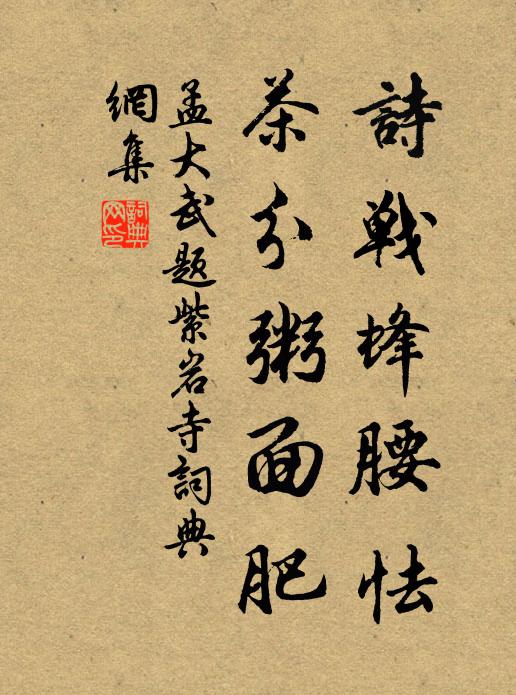 詩戰蜂腰怯
茶分粥面肥
孟大武題紫岩寺詞典
網集
詞典網印